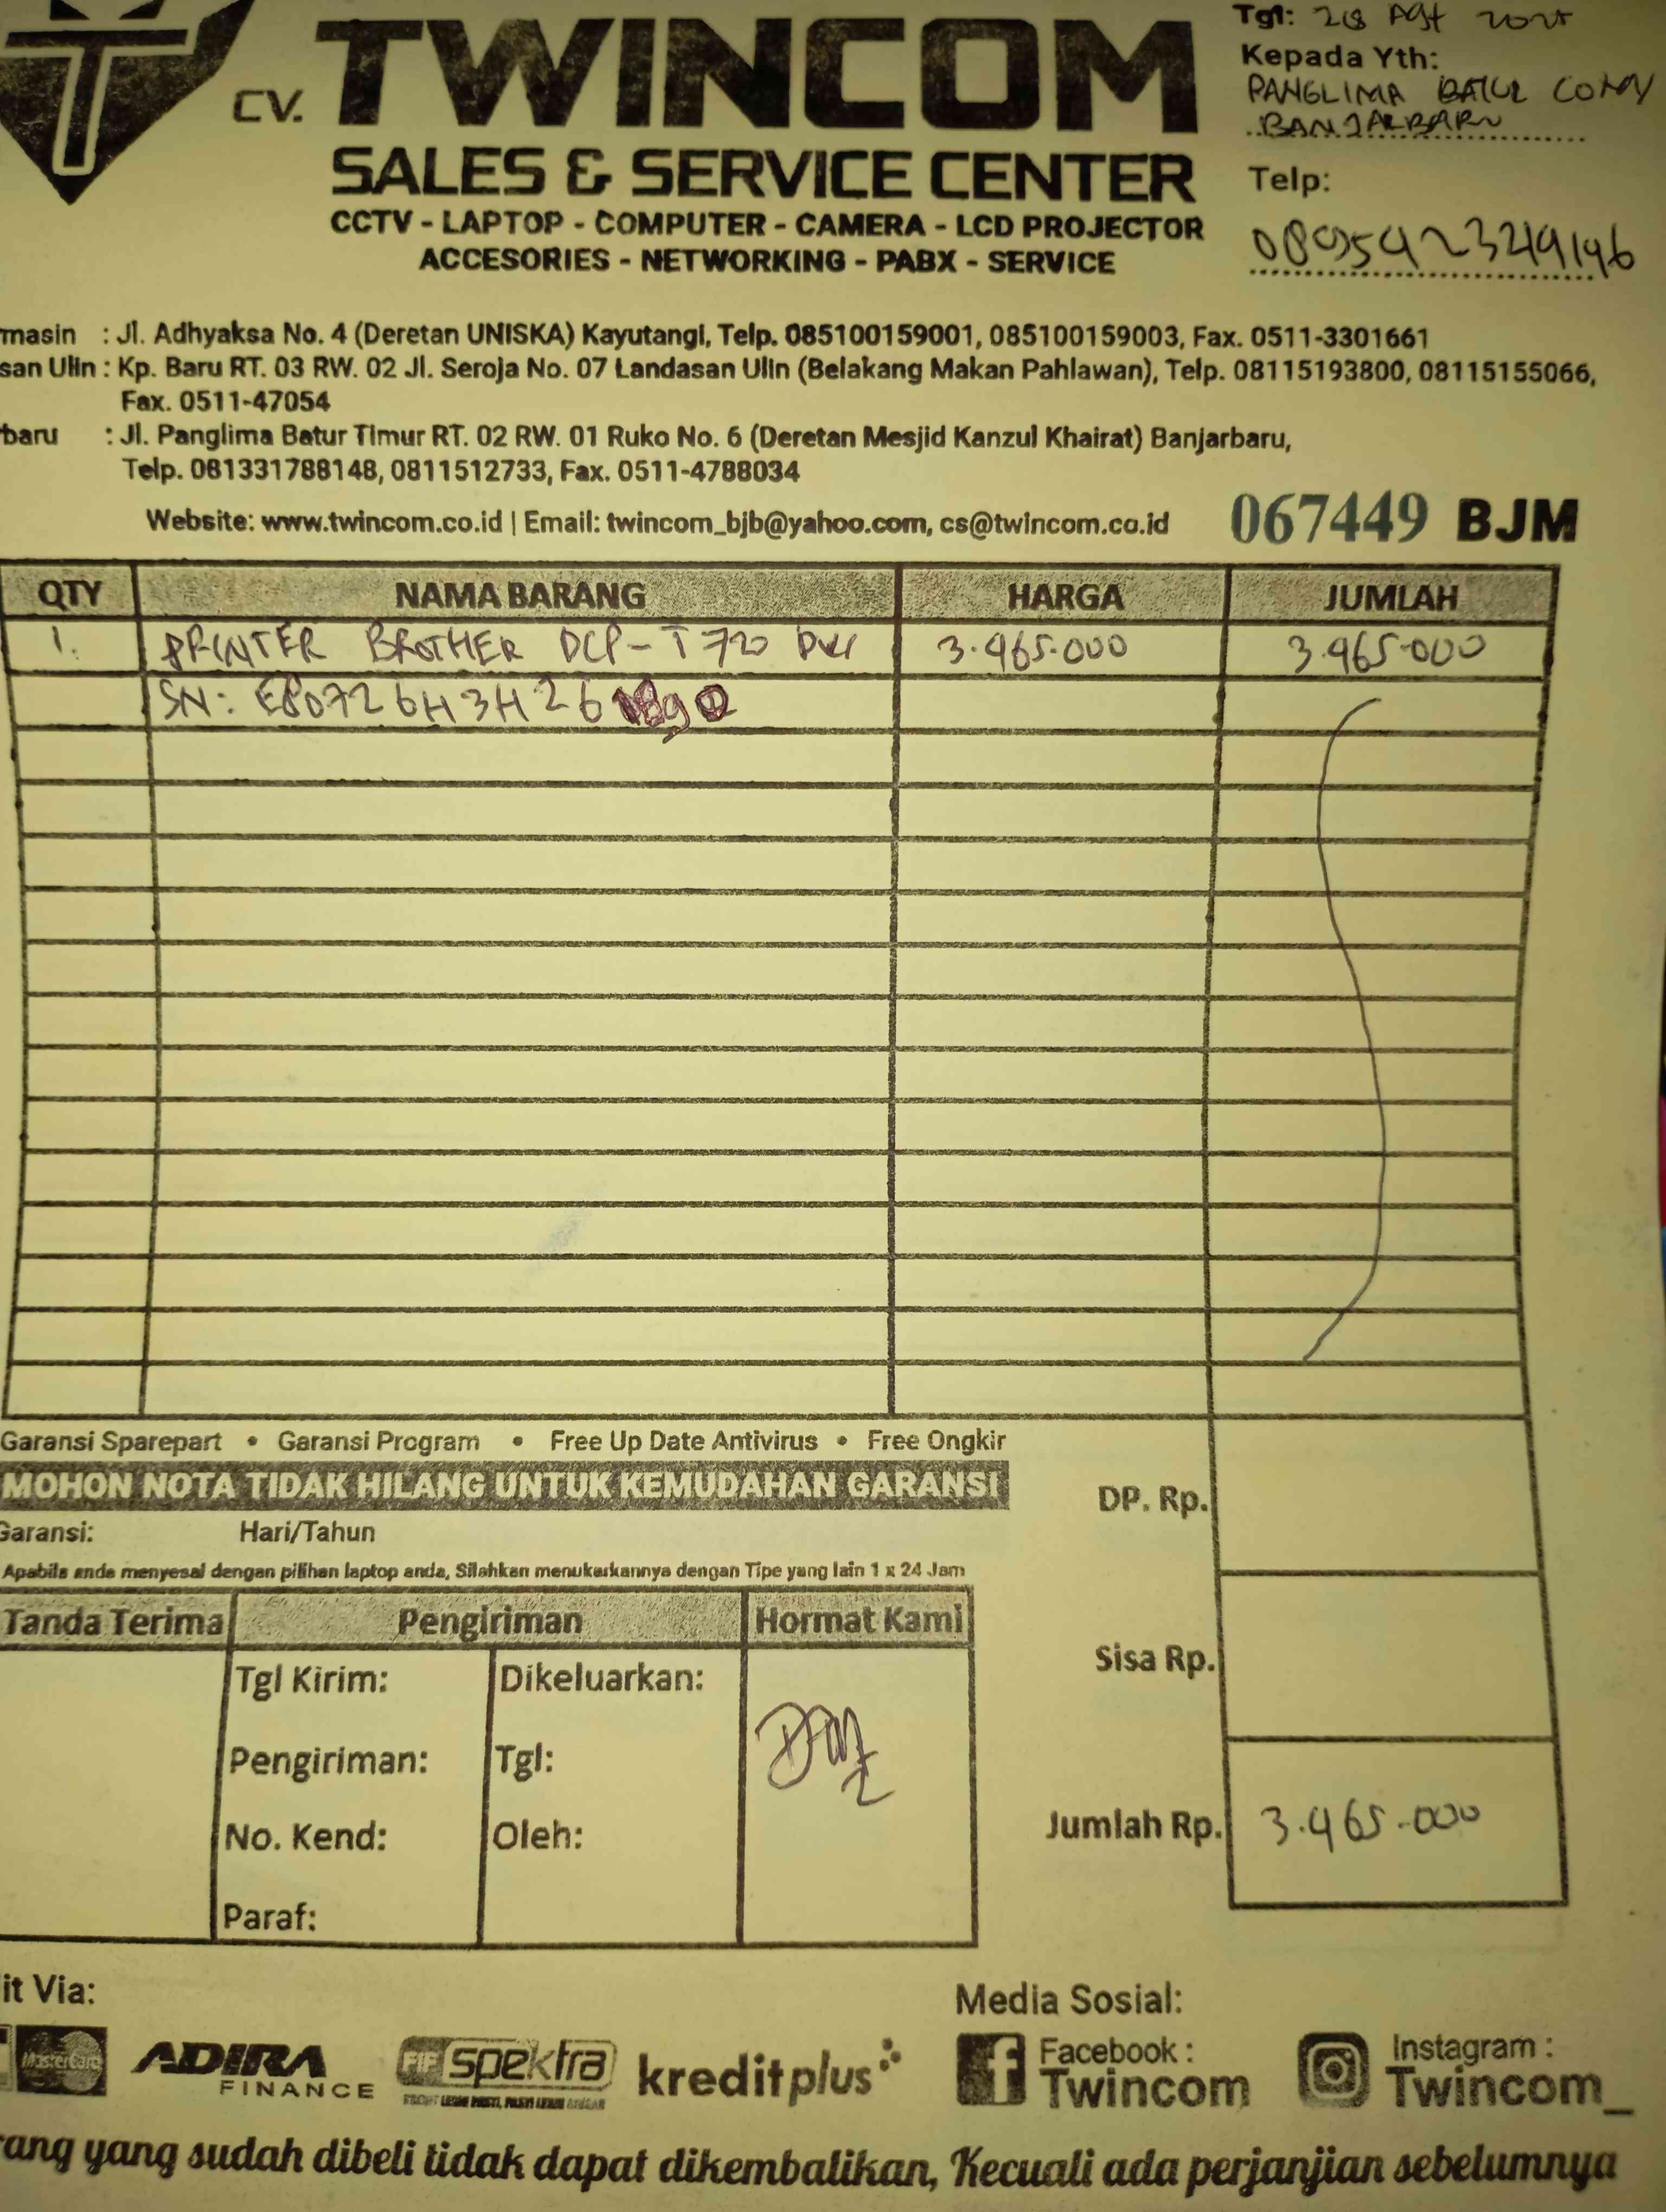 Tgl: 28 Agt 2025
CV. TWINCOM
Kepada Yth:
PANGLIMA BATUR COMP
BANJARBARU
SALES & SERVICE CENTER
Telp:
CCTV - LAPTOP - COMPUTER - CAMERA - LCD PROJECTOR
ACCESORIES - NETWORKING - PABX - SERVICE
masin : Jl. Adhyaksa No. 4 (Deretan UNISKA) Kayutangi, Telp. 085100159001, 085100159003, Fax. 0511-3301661
san Ulin : Kp. Baru RT. 03 RW. 02 Jl. Seroja No. 07 Landasan Ulin (Belakang Makan Pahlawan), Telp. 08115193800, 08115155066,
Fax. 0511-47054
baru : Jl. Panglima Batur Timur RT. 02 RW. 01 Ruko No. 6 (Deretan Mesjid Kanzul Khairat) Banjarbaru,
Telp. 081331788148, 0811512733, Fax. 0511-4788034
Website: www.twincom.co.id | Email: twincom_bjb@yahoo.com, cs@twincom.co.id
067449 BJM
QTY NAMA BARANG HARGA JUMLAH
1. PRINTER BROTHER DCP-T720 DW 3.465.000 3.465.000
SN:
Garansi Sparepart • Garansi Program • Free Up Date Antivirus • Free Ongkir
MOHON NOTA TIDAK HILANG UNTUK KEMUDAHAN GARANSI
DP. Rp.
Garansi: Hari/Tahun
Apabila anda menyesal dengan pilihan laptop anda, Silahkan menukarkannya dengan Tipe yang lain 1 x 24 Jam
Tanda Terima Pengiriman Hormat Kami
Sisa Rp.
Tgl Kirim: Dikeluarkan:
Pengiriman: Tgl:
No. Kend: Oleh:
Jumlah Rp. 3.465.000
Paraf:
it Via:
Media Sosial:
MasterCard
ADIRA
FINANCE
FIF spektra
kreditplus
Facebook :
Twincom
Instagram :
Twincom_
rang yang sudah dibeli tidak dapat dikembalikan, Kecuali ada perjanjian sebelumnya